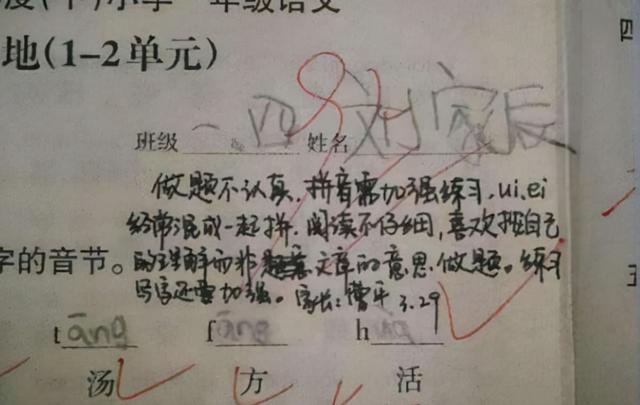 度(下)小学一年级语文
地(1-2单元)
班级 一 四 姓名 刘家辰
做题不认真.拼音需加强练习.ui.ei
经常混成一起拼.阅读不仔细,喜欢按自己
字的音节。 的理解而非题意文章的意思做题。练习
写字还需加强。家长:曹平 3.29
tāng fāng h
汤 方 活
四